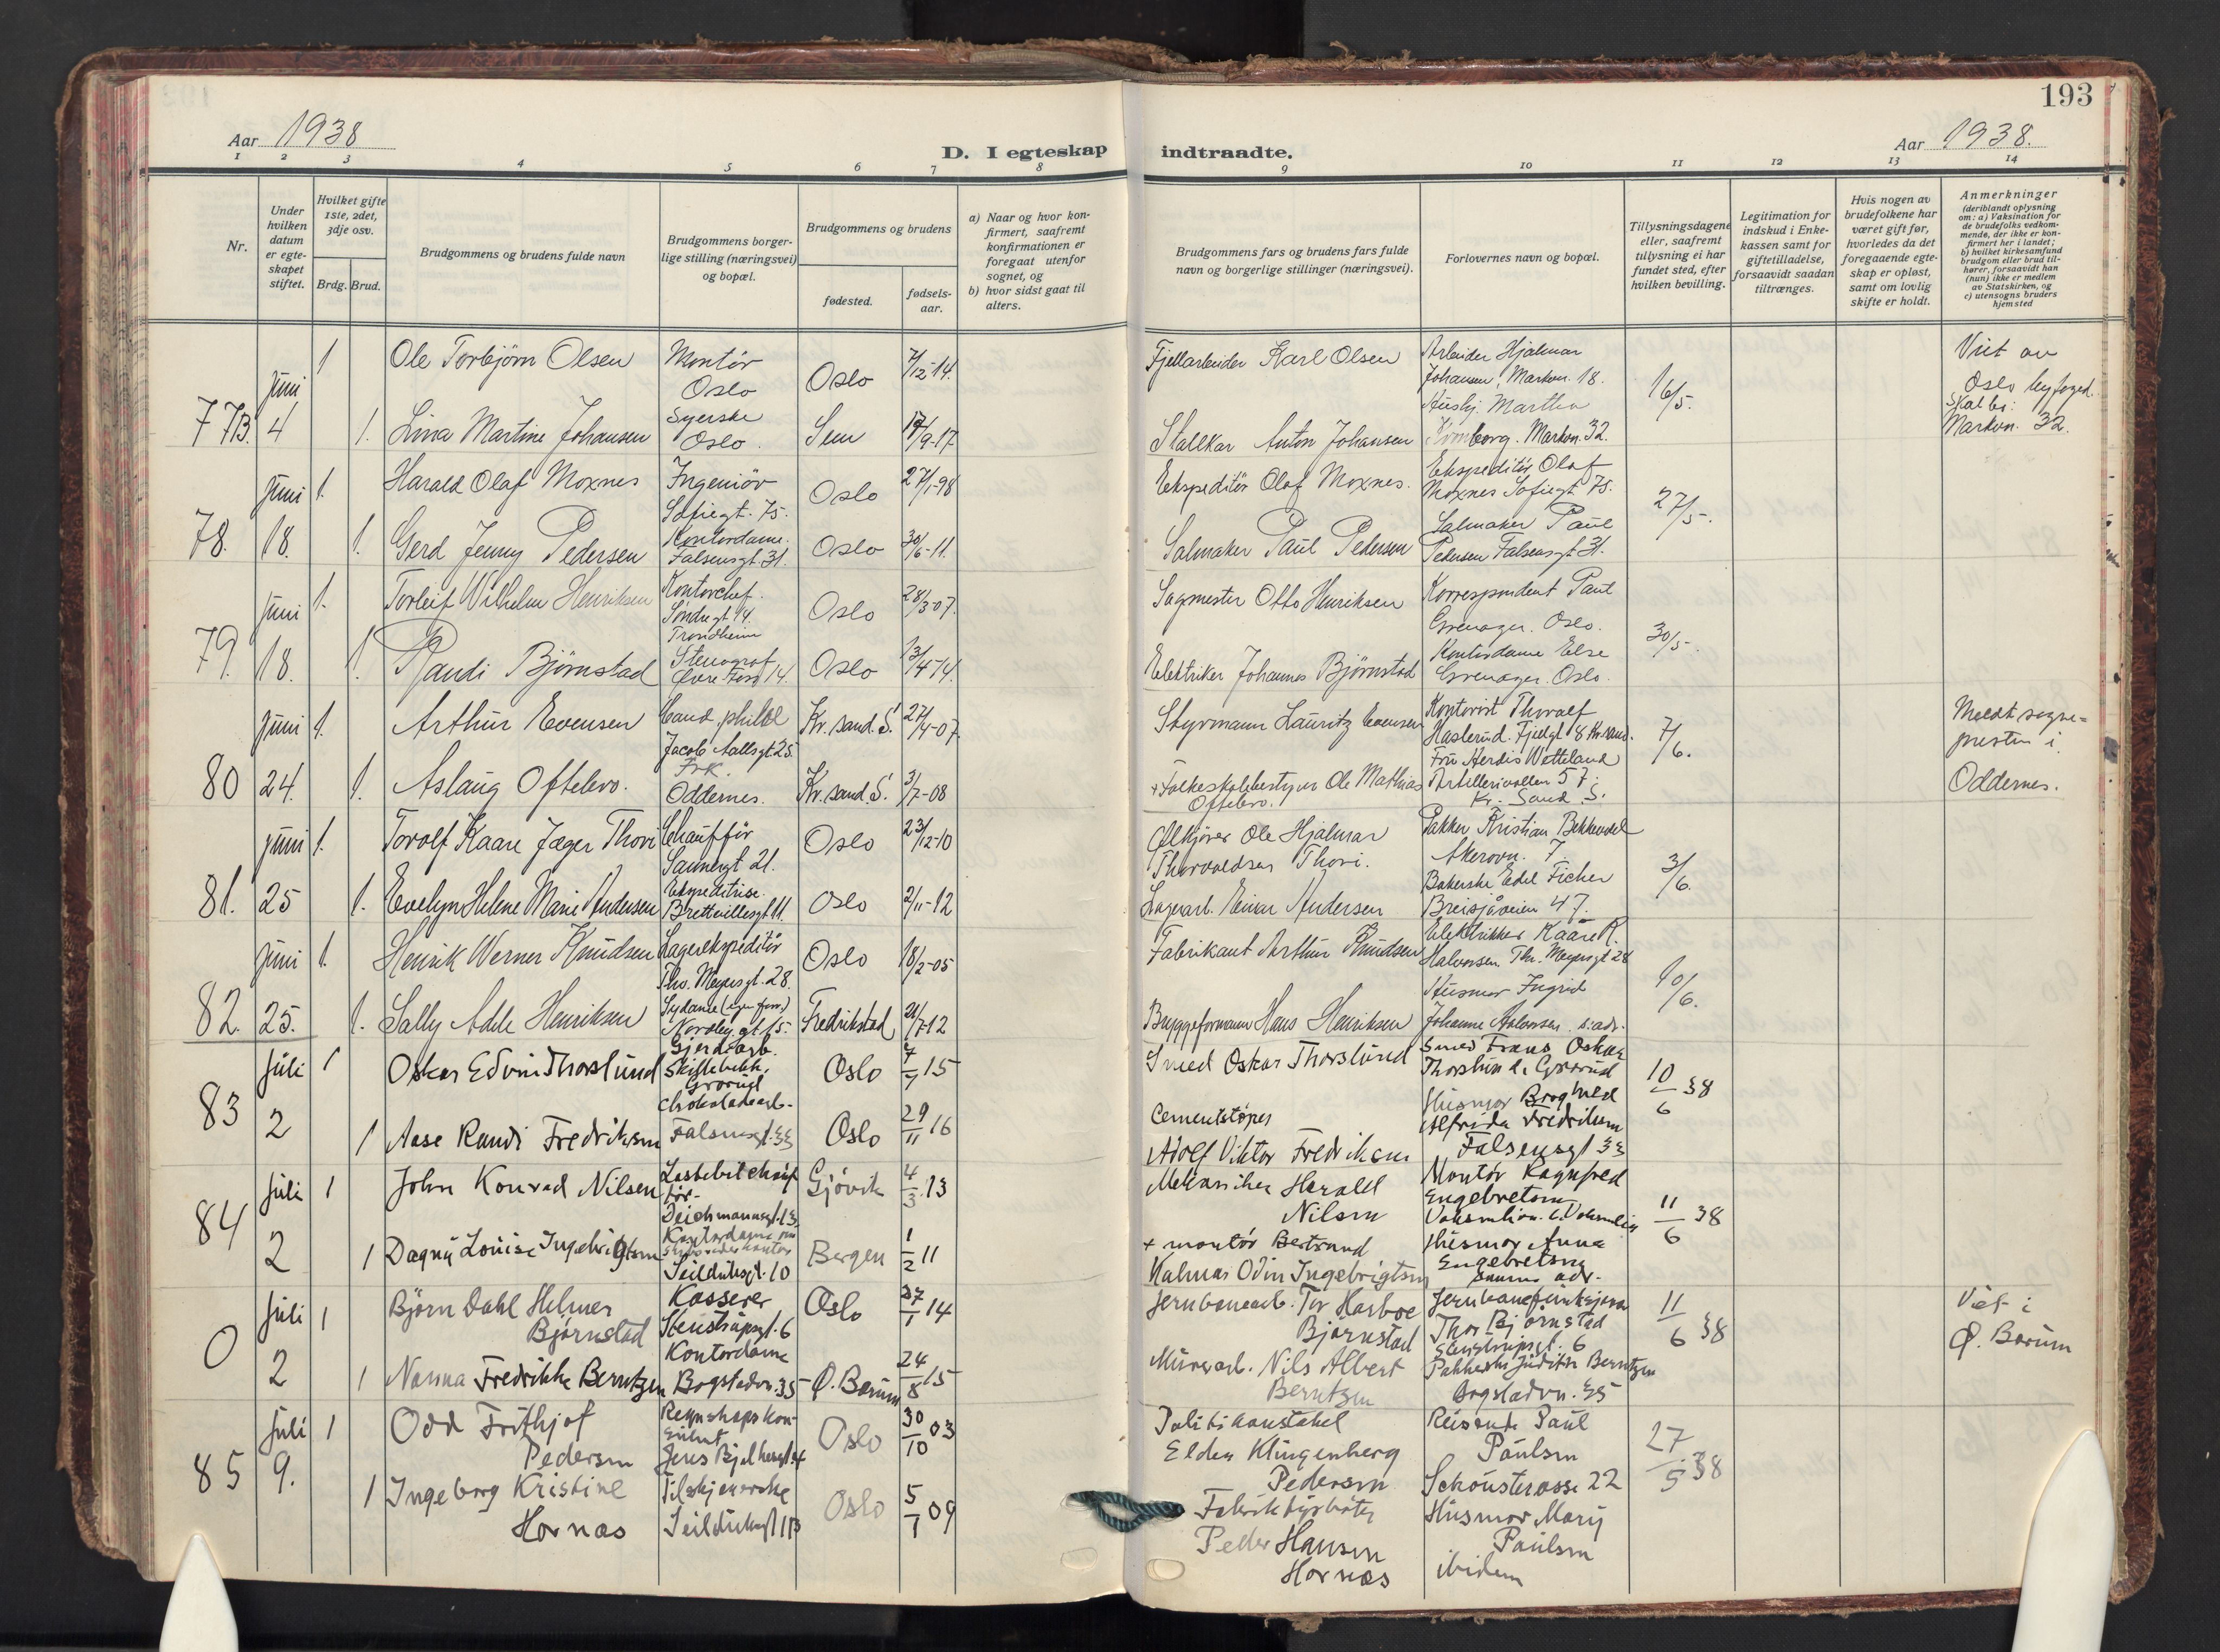 193
Aar 1938
D. I egteskap indtraadte.
Aar 1938.
1 2 3 4 5 6 7 8 9 10 11 12 13 14
Nr.
Under hvilken datum er egteskapet stiftet.
Hvilket gifte 1ste, 2det, 3dje osv.
Brdg. Brud.
Brudgommens og brudens fulde navn
Brudgommens borgerlige stilling (næringsvei) og bopæl.
Brudgommens og brudens
fødested.
fødselsaar.
a) Naar og hvor konfirmert, saafremt konfirmationen er foregaat utenfor sognet, og
b) hvor sidst gaat til alters.
Brudgommens fars og brudens fars fulde navn og borgerlige stillinger (næringsvei).
Forlovernes navn og bopæl.
Tillysningsdagene eller, saafremt tillysning ei har fundet sted, efter hvilken bevilling.
Legitimation for indskud i Enkekassen samt for giftetilladelse, forsaavidt saadan tiltrænges.
Hvis nogen av brudefolkene har været gift før, hvorledes da det foregaaende egteskap er opløst, samt om lovlig skifte er holdt.
Anmerkninger
(deriblandt oplysning om: a) Vaksination for de brudefolks vedkommende, der ikke er konfirmert her i landet; b) hvilket kirkesamfund brudgom eller brud tilhører, forsaavidt han (hun) ikke er medlem av Statskirken, og c) utensogns bruders hjemsted
77B. Juni 4
1 Ole Torbjørn Olsen Montør Oslo Oslo 7/12-14.
Fjellarbeider Karl Olsen
Arbeider Hjalmar Johansen, Markvn. 18.
16/5.
Viet av Oslo byfoged. Skal bo: Markvn. 32.
1. Lina Martine Johansen Syerske Oslo. Sem 17/9-17.
Stallkar Anton Johansen
Husbj. Martha Markvn. 32.
78. Juni 18.
1. Harald Olaf Moxnes Ingeniør Sofiegt. 75. Oslo 27/1-98
Ekspeditør Olaf Moxnes.
Ekspeditør Olaf Moxnes Sofiegt 75.
27/5.
1. Gerd Jenny Pedersen Kontordame. Falsensgt. 31. Oslo 30/6-11.
Salmaker Paul Pedersen
Salmaker Paul Pedersen Falsensgt 31.
79. Juni 18.
1. Torleif Wilhelm Henriksen Kontorchef. Søndregt 14. Trondheim Oslo 28/3-07.
Sagmester Otto Henriksen
Korrespondent Paul Grenager. Oslo.
30/5.
1. Randi Bjørnstad Stenograf Oslo 13/4-14.
Elektriker Johannes Bjørnstad
Kontordame Else Grenager. Oslo.
80 Juni 24.
1. Arthur Evensen Cand. philol Jacob Aallsgt 25. Kr.sand. S. 27/4-07.
Styrmann Lauritz Evensen
Kontorist Thoralf Haslerud. Fjellgt 8 Kr.sand.
7/6.
Meldt sogne=presten i Oddernes.
1. Aslaug Oftebro. Frk. Oddernes. Kr.sand. S. 3/7-08
+ Folkeskolebestyrer Ole Mathias Oftebro.
Fru Herdis Wetteland Artillerivollen 57. Kr. Sand S.
81. Juni 25
1. Torolf Kaare Jæger Thovi Chauffør Oslo 23/12-10
Ølkjører Ole Hjalmar Thorvaldsen Thovi.
Pakker Kristian Bekkevold Akersvn. 7
3/6.
1. Evelyn Helene Marie Andersen Ekspeditrise. Brettevillesgt. 11. Oslo 2/11-12
Lagerarb. Einar Andersen
Bakerske Edel Ficher Breisjåveien 47.
82. Juni 25.
1. Henrik Werner Knudsen Lagerekspeditør Tho. Meyersgt. 28. Oslo 18/2-05
Fabrikant Arthur Knudsen
Elektriker Kaare R. Halvorsen Th. Meyersgt 28
10/6.
1. Sally Adele Henriksen Sydame (egen forr.) Nordbygt 15. Fredrikstad 21/7-12
Bryggeformann Hans Henriksen
Husmor Ingrid Johanne Halvorsen s. adr.
83 Juli 2
1 Oskar Edvin Thorslund Skillebekk, Grorud Oslo 15
Smed Oskar Thorslund
Smed Frans Oskar Thorslund, Grorud
10/6 38
1 Aase Randi Fredriksen Chokoladearb. Falsensgt. 33 Oslo 29/11 16
Cementstøper Adolf Viktor Fredriksen
Husmor Borghild Alfrida Fredriksen Falsensgt 33
84 Juli 2
1 John Konrad Nilsen Lastebilchaufför Deichmannsgt. 13 Gjövik 4/3 13
Mekaniker Harald Nilsen
Montör Ragnfred Engebretsen
11/6 38
1 Dagny Louise Ingebrigtsen Seilduksgt. 10 Bergen 1/2 11
+ montör Bertrand Kalmar Odin Ingebrigtsen
Husmor Anna Engebretsen samme adr.
0 Juli 2
1 Björn Dahl Helmer Björnstad Kasserer Stenstrupsgt. 6 Oslo 27/1 14
Jernbanearb. Tor Harboe Bjørnstad
Thor Bjørnstad Stenstrupsgt. 6
11/6 38
Viet i Ø. Bærum
1 Nanna Fredrikke Berntzen Kontordame Bogstadvn. 35 Ø. Bærum 24/8 15
Murerarb. Nils Albert Berntzen
Pakkerske Judith Berntzen Bogstadvn. 35
85 Juli 9.
1 Odd Frithjof Pedersen Regnskapskonsulent Jens Bjelkesgt. 4 Oslo 30/10 03
Politikonstabel Elden Klingenberg Pedersen
Reisende Paul Paulsen Schousterrasse 22
27/5 38
1 Ingeborg Kristine Hornæs Tilskjærerske Seilduksgt 11B Oslo 5/1 09
Fabrikfyrbøter Peder Hansen Hornæs
Husmor Mary Paulsen ibidem